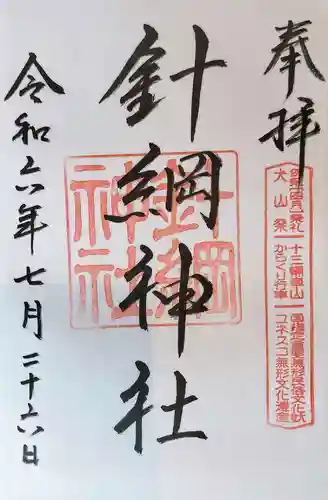 奉拝
犬山祭
十三輌車山
からくり行事
国指定重要無形民俗文化財
ユネスコ無形文化遺産
針綱神社
針綱
神社
令和六年七月二十六日